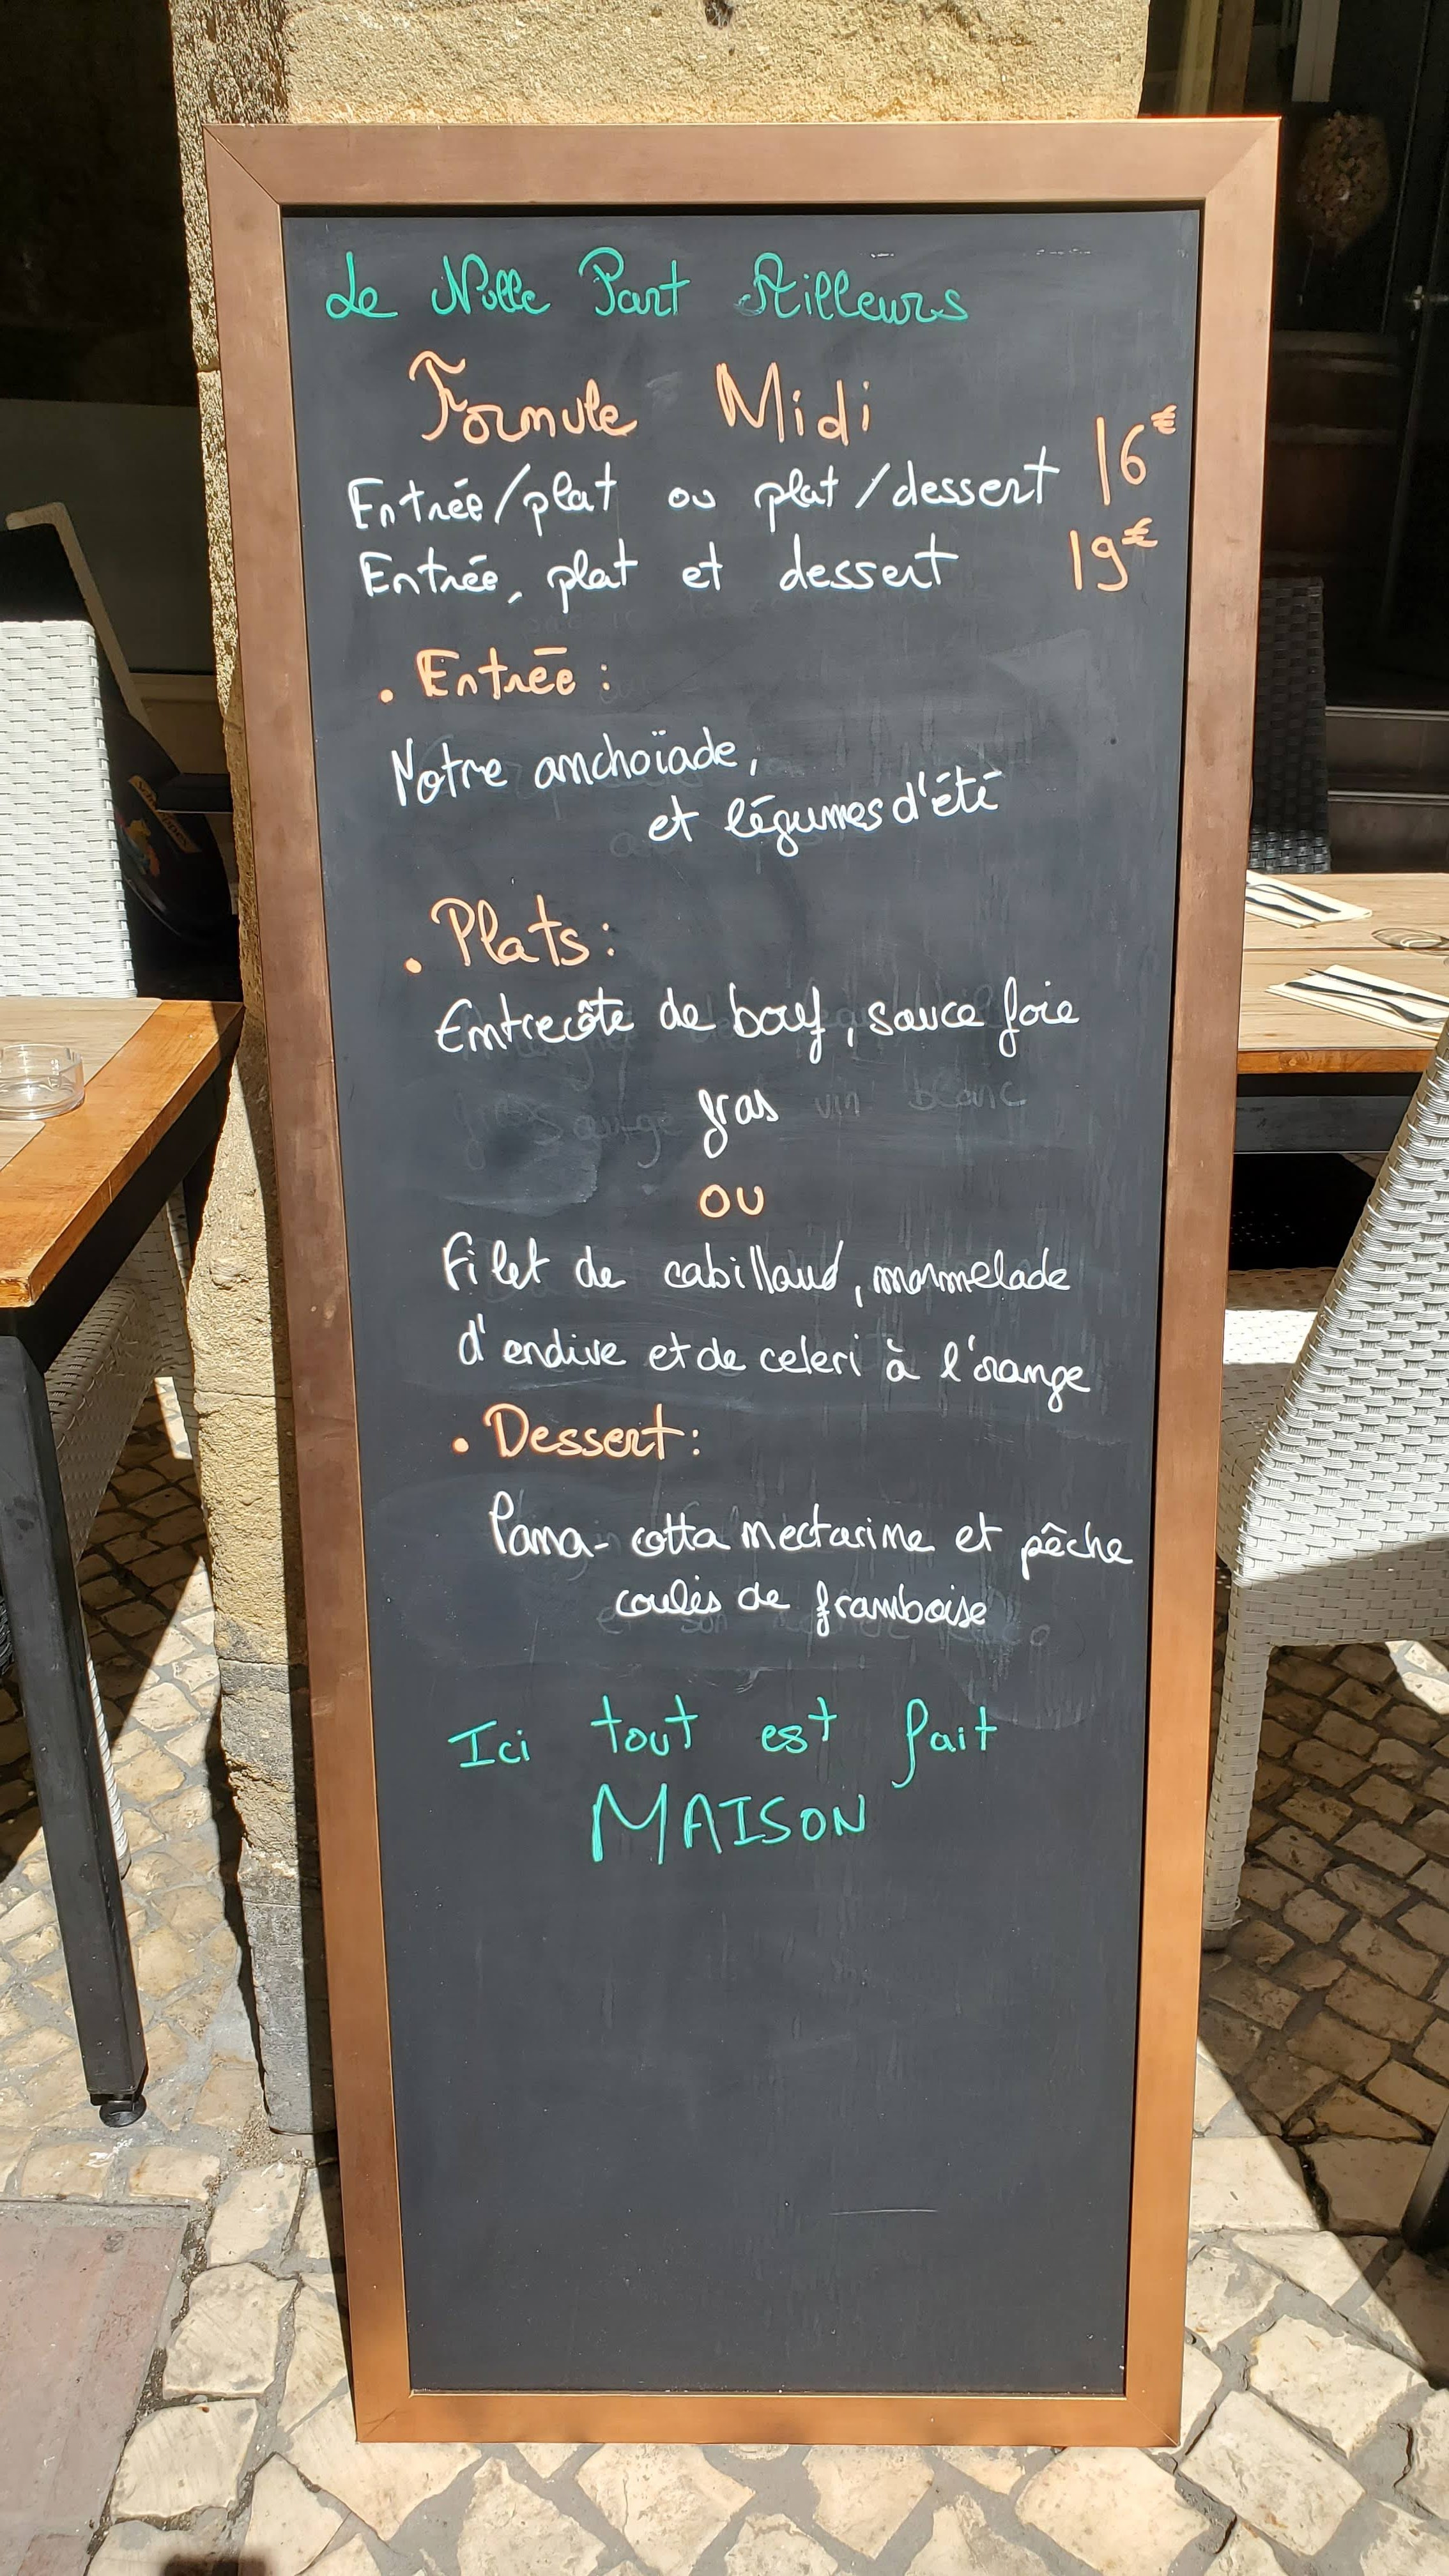 Le Nulle Part Ailleurs
Formule Midi
Entrée/plat ou plat/dessert 16€
Entrée, plat et dessert 19€
. Entrée :
Notre anchoïade,
et légumes d'été
. Plats :
Entrecôte de bœuf, sauce foie
gras
OU
Filet de cabillaud, marmelade
d'endive et de celeri à l'orange
. Dessert :
Pana-cotta nectarine et pêche
coulis de framboise
Ici tout est fait
MAISON